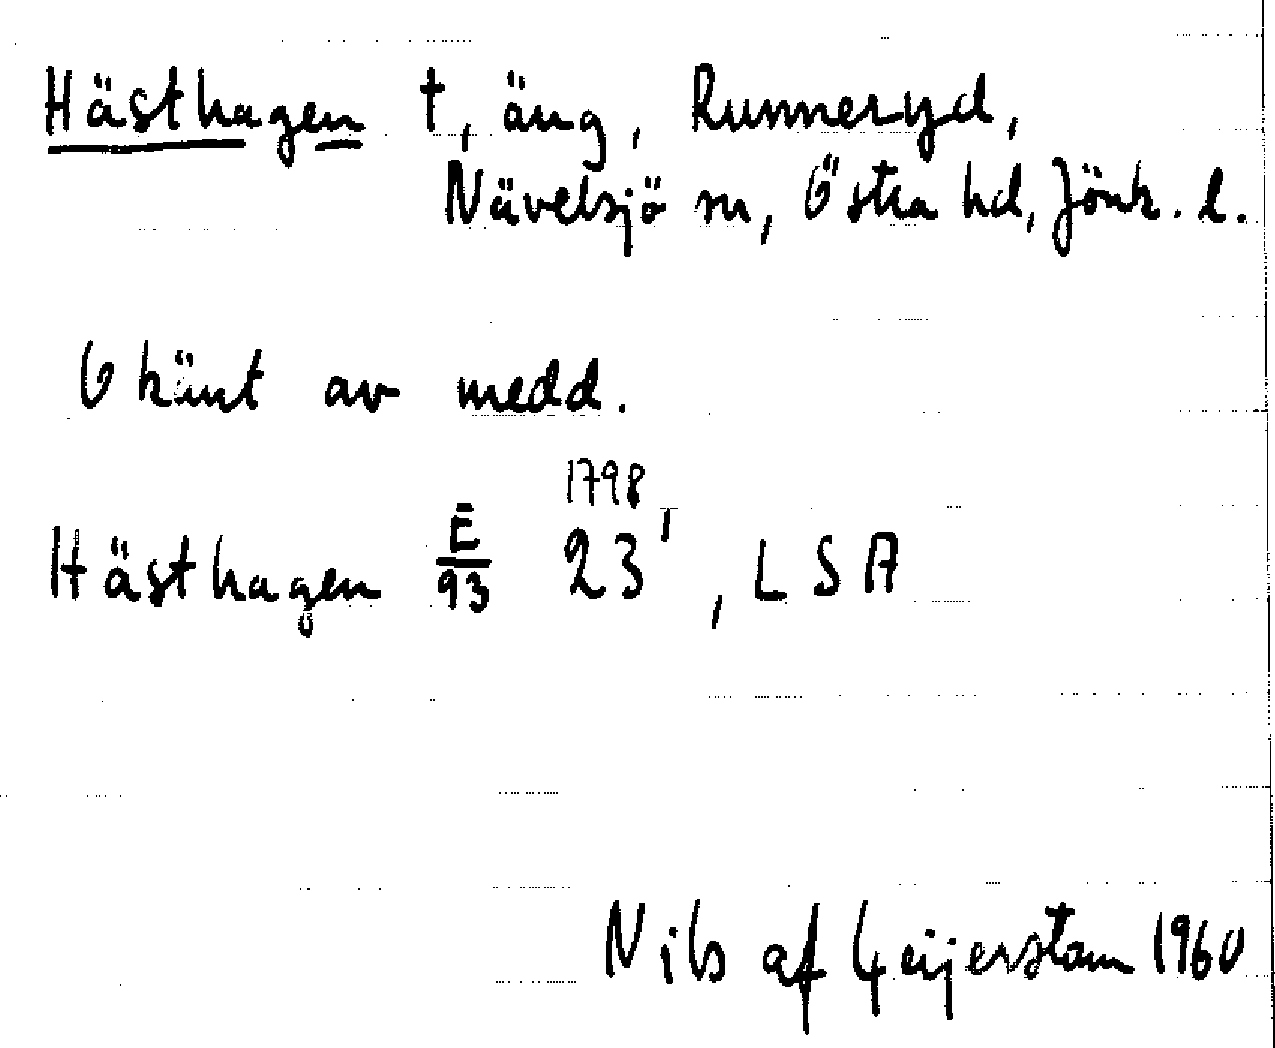 Hästhagen †, äng, Runneryd,
Nävelsjö sn, Östra hd, Jönk. l.
Okänt av medd.
1798
Hästhagen E/93 23', LSA
Nils af Geijerstam 1960